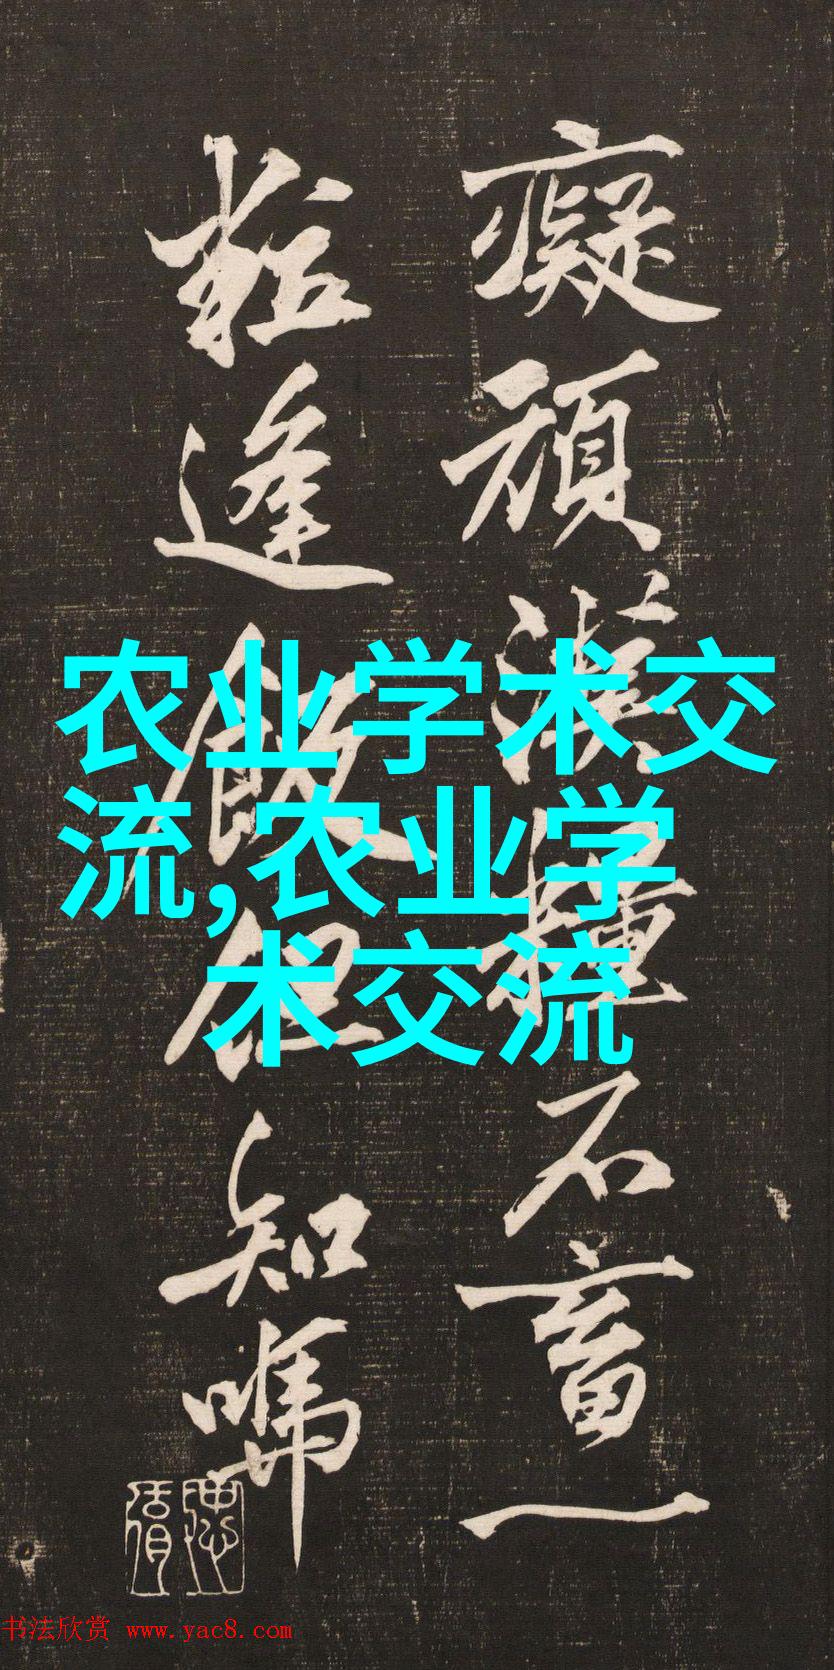 农业学术交
流,农业学
术交流
癡頑漢種石畜一
粒逢飯但知
书法欣赏 www.yac8.com